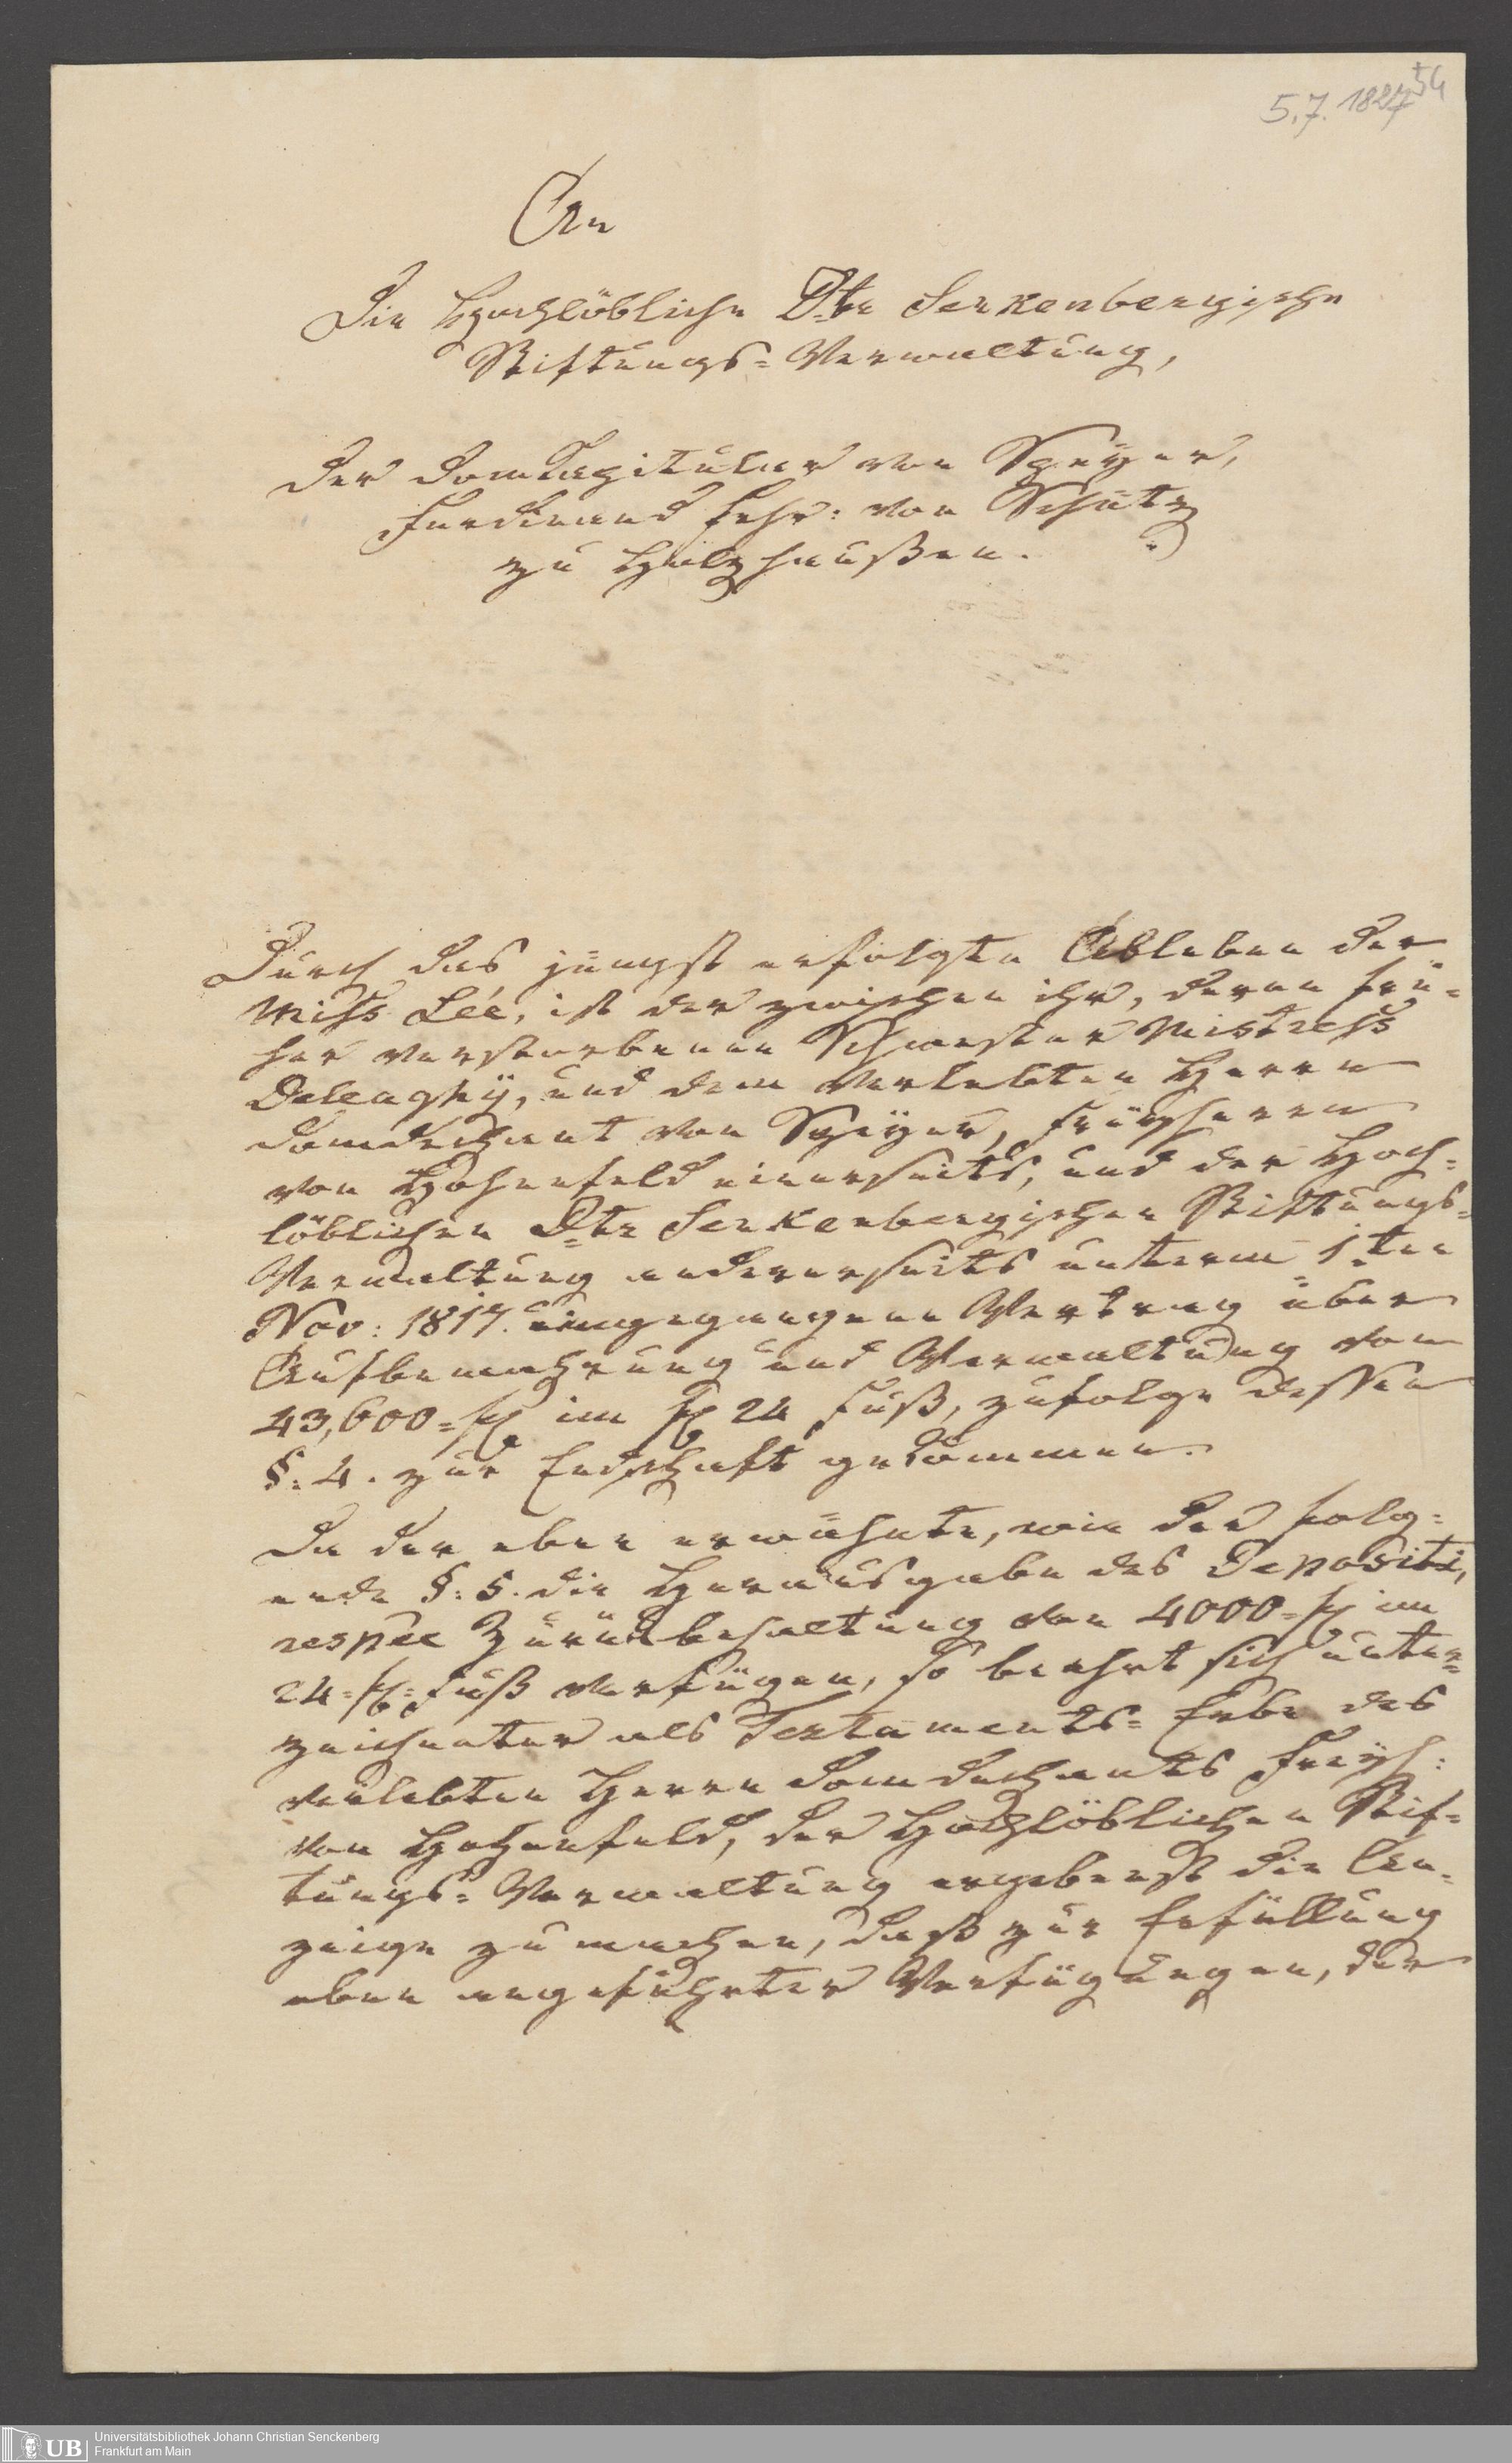 5.7.1827
54
An
Die Hochlöbliche Dtr Senkenbergische
Stiftungs=Verwaltung,
Der Domkapitular von Speÿer,
Ferdinand Frhr: von Schütz
zu Holzhaußen.
Durch das jüngst erfolgte Ableben der
Miss Lée, ist der zwischen ihr, deren frü=
her verstorbenen Schwester Mistress
Delaaphÿ, und dem verlebten Herrn
Domdechant von Speÿer, Freÿherrn
von Hohenfeld einerseits, und der Hoch=
löblichen Dtr Senkenbergischen Stiftungs=
Verwaltung andererseits unterm 1ten
Nov: 1817. eingegangene Vertrag über
Aufbewahrung und Verwaltung von
43,600=fl im fl 24 Fuß, zufolge dessen
§: 4. zur Endschaft gekommen.
Da der eben erwähnte, wie der folg=
ende §: 5. die Herausgabe des Depositi,
respée Zurückbehaltung von 4000=fl im
24=fl=Fuß verfügen, so beehrt sich unter=
zeichneter als Testaments=Erbe des
verlebten Herrn Domdechants Freÿh:
von Hohenfeld, der Hochlöblichen Stif=
tungs=Verwaltung ergebenst die An=
zeige zu machen, daß zur Erfüllung
eben angeführter Verfügungen, der
UB
Universitätsbibliothek Johann Christian Senckenberg
Frankfurt am Main